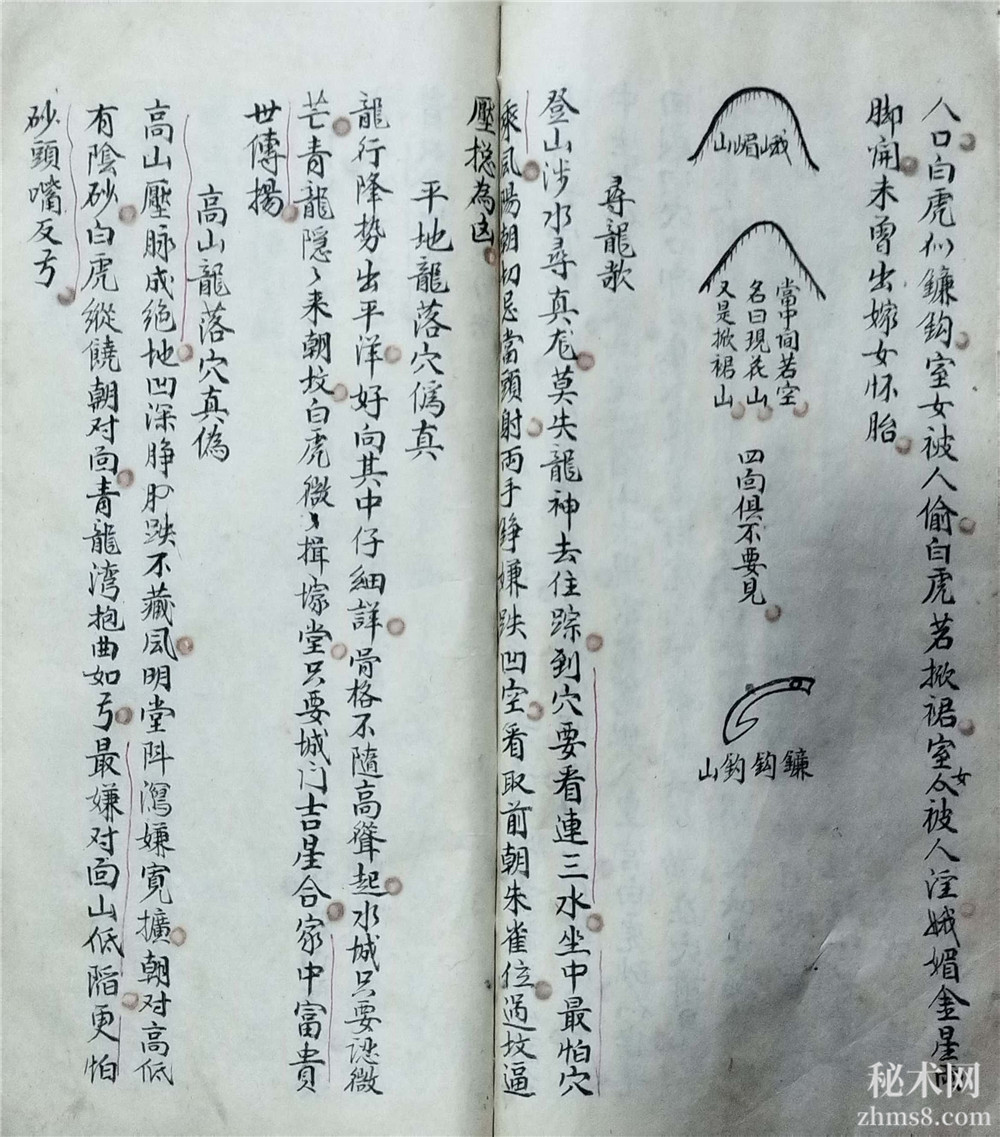 人口白虎似鐮鈎室女被人偷白虎若掀裙室女被人淫娥媚金星
脚開未曾出嫁女怀胎
山媚峨
當中间若空
名曰現花山
又是掀裙山
四面俱不要見
山釣鈎鐮
尋龍歌
登山涉水尋真龙莫失龍神去住踪到穴要看連三水坐中最怕穴
乘風陽朝切忌當頭射両手睁嫌跌凹空看取前朝朱雀位逃坟逼
壓捴為凶
平地龍落穴僞真
龍行降势出平洋好向其中仔細詳骨格不隨高聳起水城只要認微
芒青龍隱々来朝坟白虎微々揖塚堂只要城门吉星合家中富貴
世傳揚
高山龍落穴真偽
高山壓脉成绝地凹深睁跌不藏风明堂斜瀉嫌寬擴朝对高低
有陰砂白虎縱饒朝对面青龍湾抱曲如弓最嫌对面山低陷更怕
砂頭嘴反弓
秘术网
zhms8.com